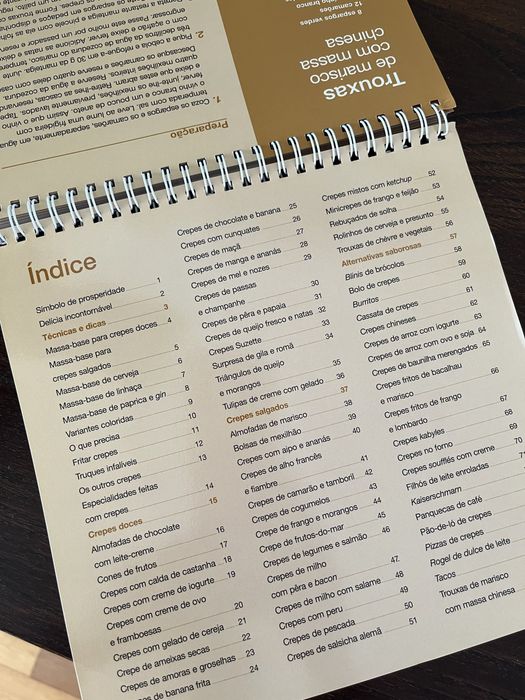 Trouxas
de marisco
com massa
chinesa
8 espargos verdes
12 camarões
branco
Preparação
1. Coza os espargos e os camarões, separadamente, em água
temperada com sal. Leve ao lume uma frigideira com
o vinho branco e um pouco de aneto. Assim que o vinho
ferver, junte-lhe os mexilhões, previamente lavados. Tape
e deixe que estes abram. Retire-lhes as cascas, reservando
quatro mexilhões inteiros. Reserve a água da cozedura.
Descasque os camarões e reserve quatro deles com casca.
2. Pique a cebola e refogue-a em 30 g da manteiga. Junte
três decilitros da água de cozedura do marisco, tempere
com açafrão e deixe ferver. Adicione as natas e deixe
engrossar. Passe este molho por um passador e reserve
Índice
Símbolo de prosperidade 1
Delícia incontornável 2
Técnicas e dicas 3
Massa-base para crepes doces 4
Massa-base para
crepes salgados 5
Massa-base de cerveja 6
Massa-base de linhaça 7
Massa-base de paprica e gin 8
Variantes coloridas 9
O que precisa 10
Fritar crepes 11
Truques infalíveis 12
Os outros crepes 13
Especialidades feitas
com crepes 14
Crepes doces 15
Almofadas de chocolate
com leite-creme 16
Cones de frutos 17
Crepes com calda de castanha 18
Crepes com creme de iogurte 19
Crepes com creme de ovo
e framboesas 20
Crepes com gelado de cereja 21
Crepe de ameixas secas 22
Crepes de amoras e groselhas 23
de banana frita 24
Crepes de chocolate e banana 25
Crepes com cunquates 26
Crepes de maçã 27
Crepes de manga e ananás 28
Crepes de mel e nozes 29
Crepes de passas
e champanhe 30
Crepes de pêra e papaia 31
Crepes de queijo fresco e natas 32
Crepes Suzette 33
Surpresa de gila e romã 34
Triângulos de queijo
e morangos 35
Tulipas de creme com gelado 36
Crepes salgados 37
Almofadas de marisco 38
Bolsas de mexilhão 39
Crepes com aipo e ananás 40
Crepes de alho francês
e fiambre 41
Crepes de camarão e tamboril 42
Crepes de cogumelos 43
Crepe de frango e morangos 44
Crepe de frutos-do-mar 45
Crepes de legumes e salmão 46
Crepes de milho
com pêra e bacon 47
Crepes de milho com salame 48
Crepes com peru 49
Crepes de pescada 50
Crepes de salsicha alemã 51
Crepes mistos com ketchup 52
Minicrepes de frango e feijão 53
Rebuçados de solha 54
Rolinhos de cerveja e presunto 55
Trouxas de chèvre e vegetais 56
Alternativas saborosas 57
Blinis de brócolos 58
Bolo de crepes 59
Burritos 60
Cassata de crepes 61
Crepes chineses 62
Crepes de arroz com iogurte 63
Crepes de arroz com ovo e soja 64
Crepes de baunilha merengados 65
Crepes fritos de bacalhau
e marisco 66
Crepes fritos de frango
e lombardo 67
Crepes kabyles 68
Crepes no forno 69
Crepes soufflés com creme 70
Filhós de leite enroladas
Kaiserschmarn
Panquecas de café
Pão-de-ló de crepes
Pizzas de crepes
Rogel de dulce de leite
Tacos
Trouxas de marisco
com massa chinesa